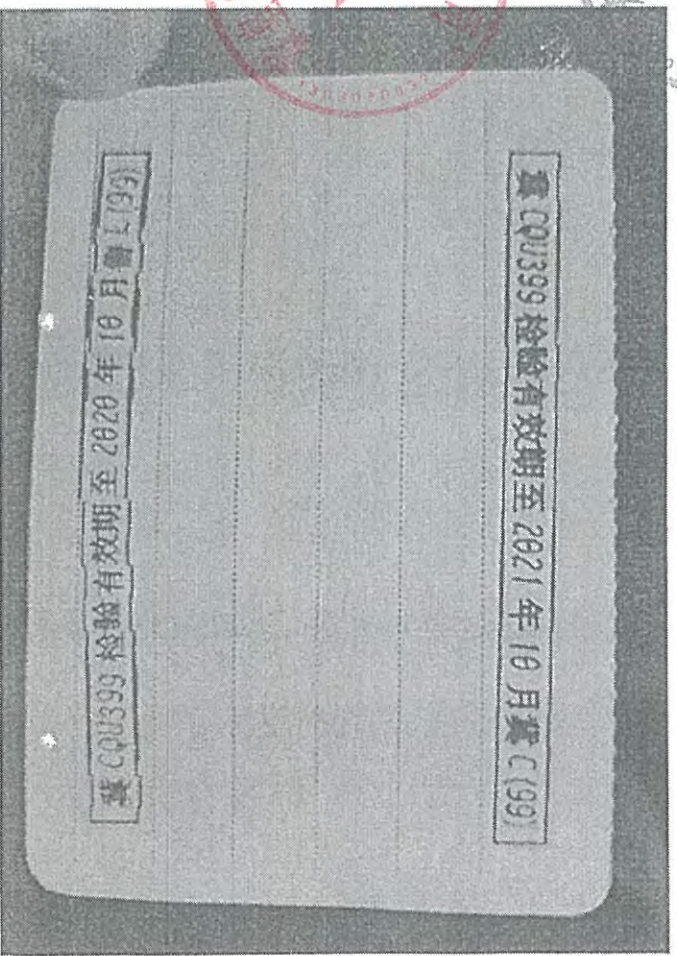 冀CQU399检验有效期至2020年10月鲁L(99)
冀CQU399检验有效期至2021年10月冀C(99)